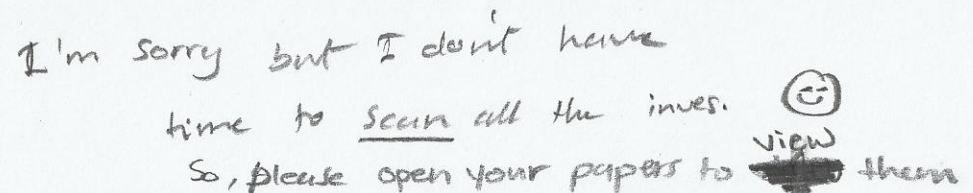 I'm sorry but I don't have
time to scan all the inves.
So, please open your papers to view them